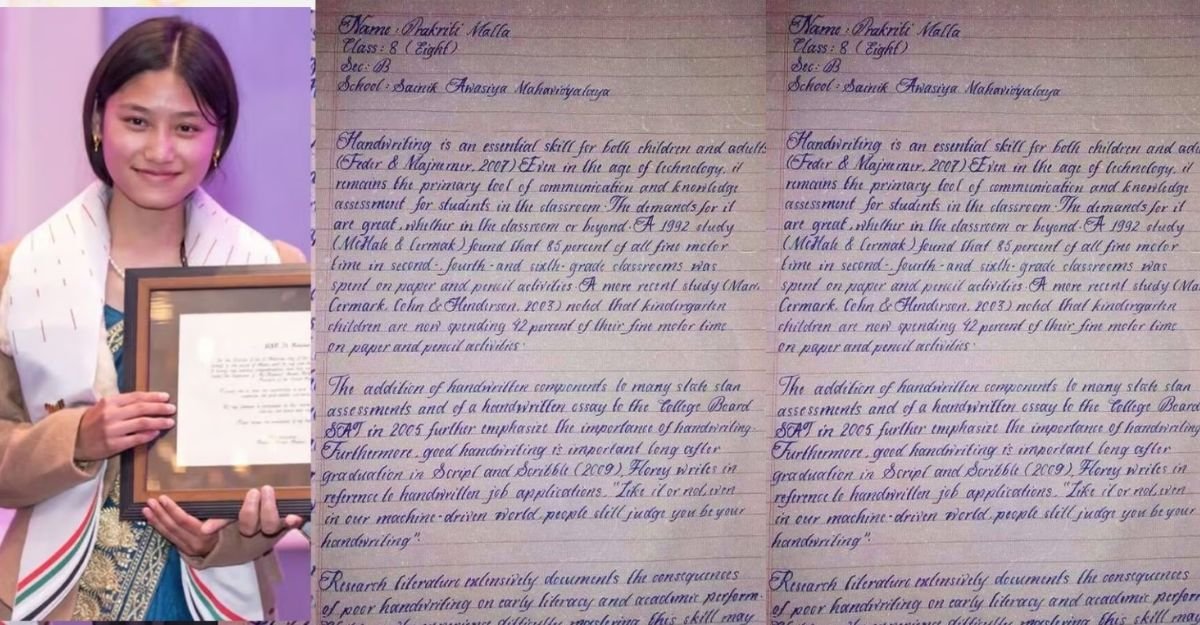 Name : Prakriti Malla
Class : 8 (Eight)
Sec : B
School : Sainik Awasiya Mahavidyalaya
Handwriting is an essential skill for both children and adults
(Feder & Majnemer, 2007) Even in the age of technology, it
remains the primary tool of communication and knowledge
assessment for students in the classroom. The demands for it
are great, whether in the classroom or beyond. A 1992 study
(McHale & Cermak) found that 85 percent of all fine motor
time in second-, fourth- and sixth-grade classrooms was
spent on paper and pencil activities. A more recent study (Marr,
Cermark, Cohn & Henderson, 2003) noted that kindergarten
children are now spending 42 percent of their fine motor time
on paper and pencil activities.
The addition of handwritten components to many state stan
assessments and of a handwritten essay to the College Board
SAT in 2005 further emphasize the importance of handwriting.
Furthermore, good handwriting is important long after
graduation in Script and Scribble (2009), Florey writes in
reference to handwritten job applications, "Like it or not, even
in our machine-driven world, people still judge you be your
handwriting".
Research literature extensively documents the consequences
of poor handwriting on early literacy and academic perform-
experience difficulty mastering this skill may
Name : Prakriti Malla
Class : 8 (Eight)
Sec : B
School : Sainik Awasiya Mahavidyalaya
Handwriting is an essential skill for both children and adu
(Feder & Majnemer, 2007) Even in the age of technology, it
remains the primary tool of communication and knowledge
assessment for students in the classroom. The demands for it
are great, whether in the classroom or beyond. A 1992 study
(McHale & Cermak) found that 85 percent of all fine motor
time in second-, fourth- and sixth-grade classrooms was
spent on paper and pencil activities. A more recent study (Ma
Cermark, Cohn & Henderson, 2003) noted that kindergarten
children are now spending 42 percent of their fine motor time
on paper and pencil activities.
The addition of handwritten components to many state stan
assessments and of a handwritten essay to the College Board
SAT in 2005 further emphasize the importance of handwriting
Furthermore, good handwriting is important long after
graduation in Script and Scribble (2009), Florey writes in
reference to handwritten job applications, "Like it or not, even
in our machine-driven world, people still judge you be your
handwriting".
Research literature extensively documents the consequences
of poor handwriting on early literacy and academic perform
experience difficulty mastering this skill may